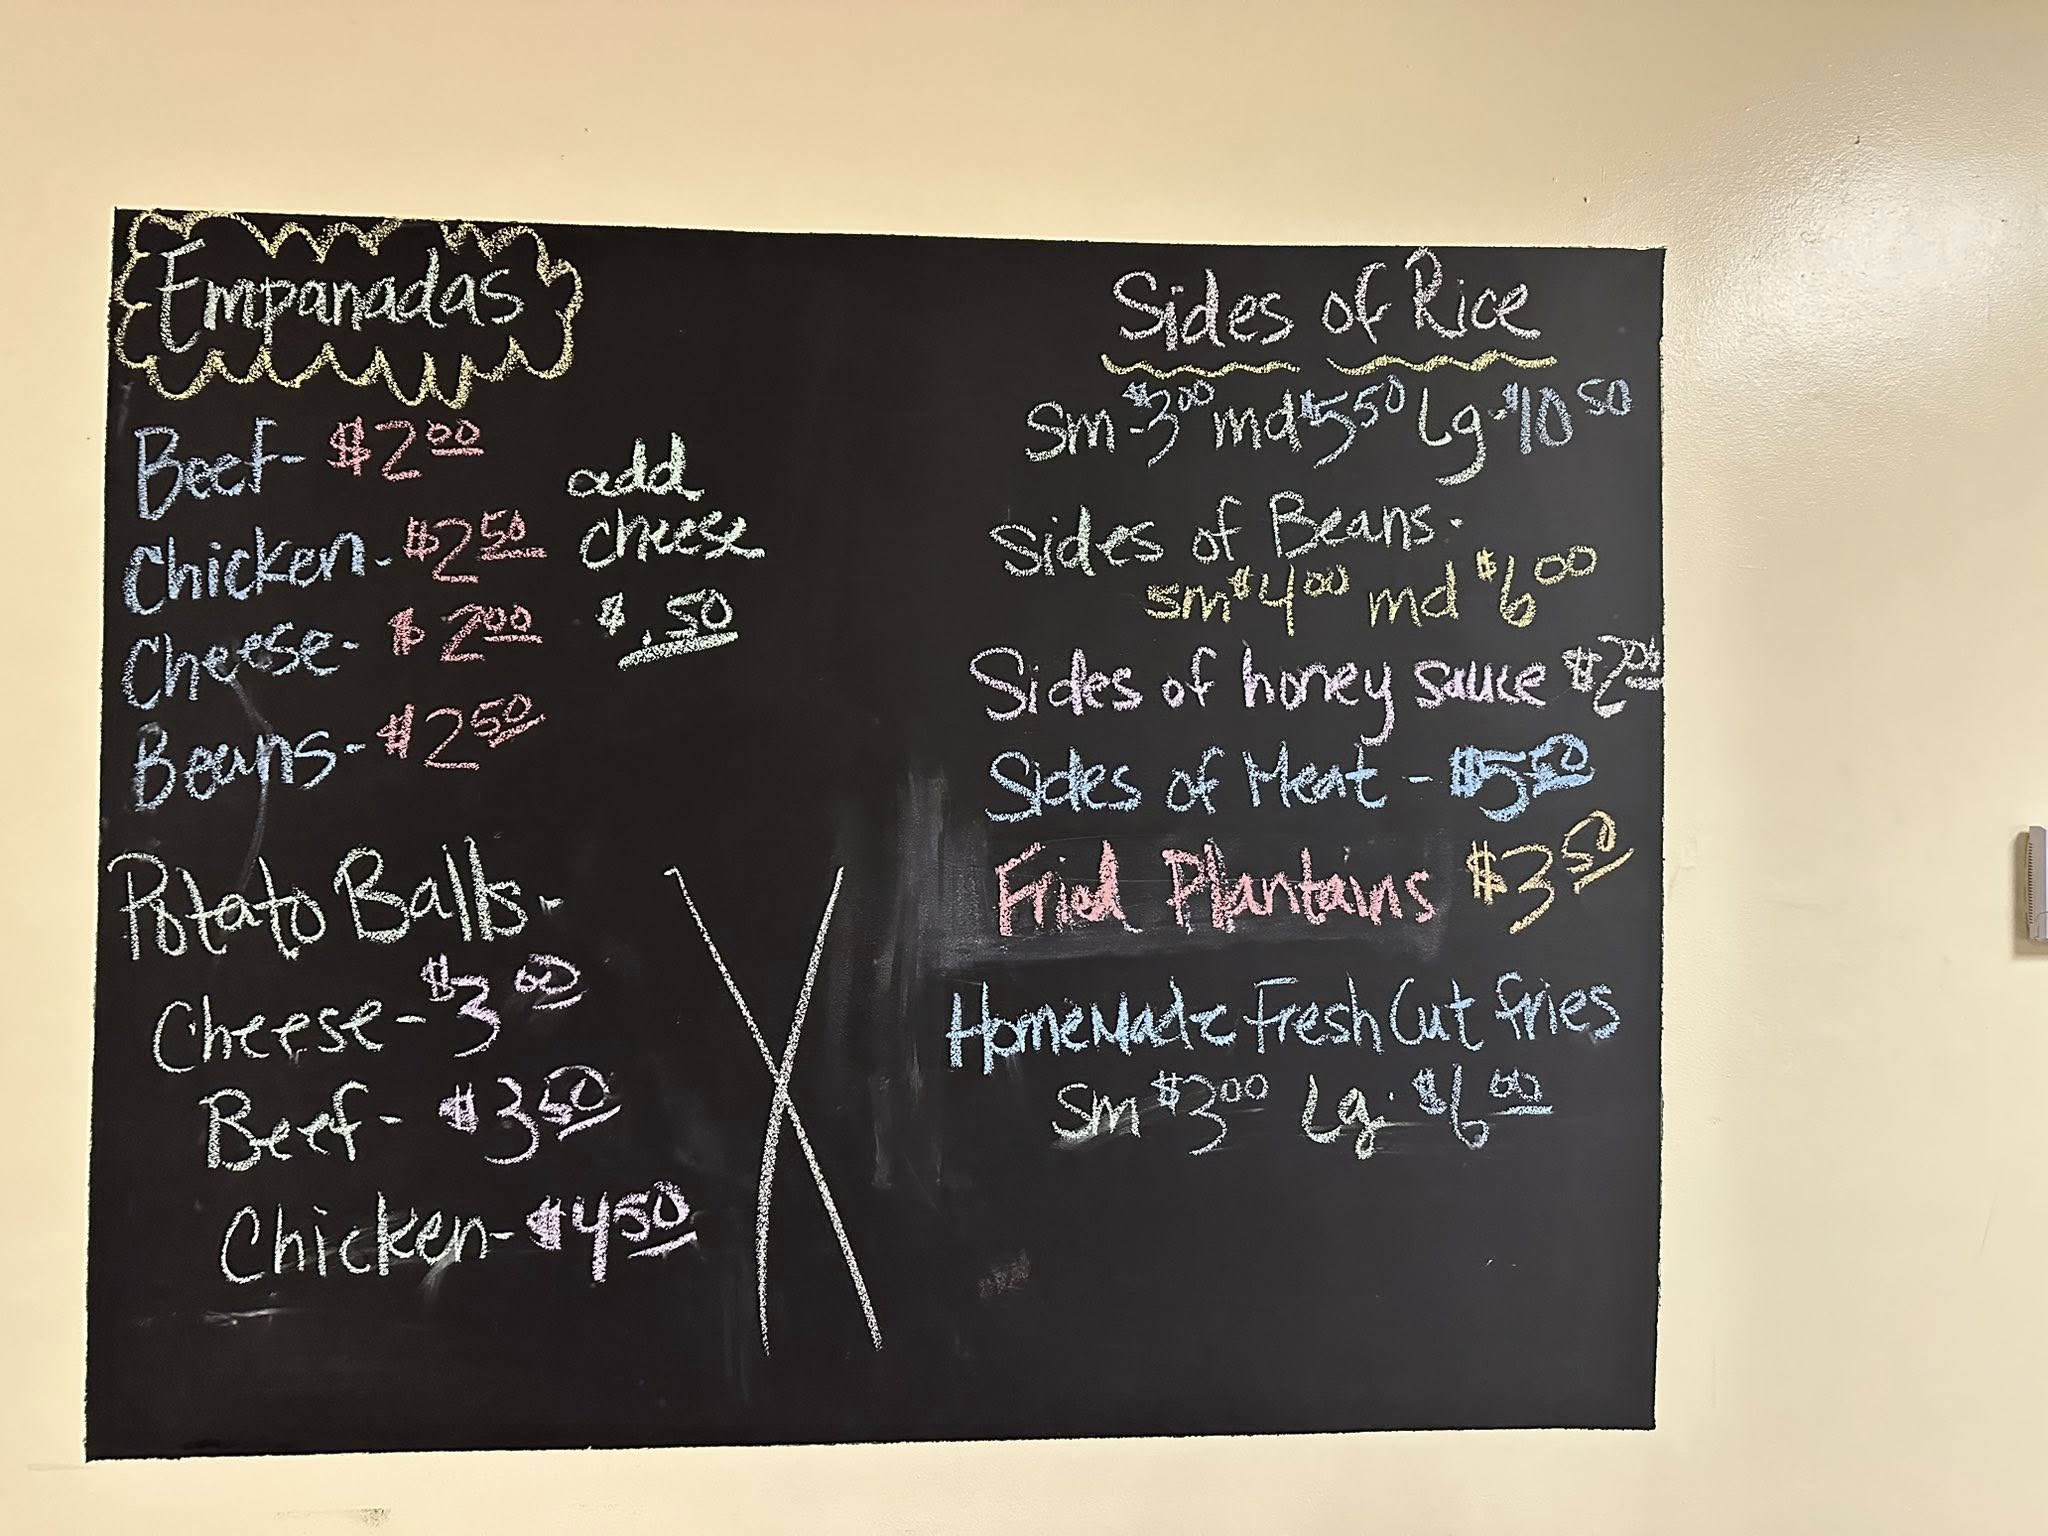 Empanadas
Beef- $2.00
Chicken- $2.50
Cheese- $2.00
Beans- $2.50
add
cheese
$.50
Potato Balls-
Cheese- $3.00
Beef- $3.50
Chicken- $4.50
Sides of Rice
Sm-$3.00 md$5.50 Lg-$10.50
Sides of Beans-
sm $4.00 md $6.00
Sides of honey sauce $2.00
Sides of Meat - $5.50
Fried Plantains $3.50
HomeMade Fresh Cut fries
Sm $3.00 Lg- $6.00